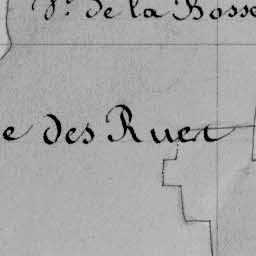 Sr de la Bosse
e des Rues